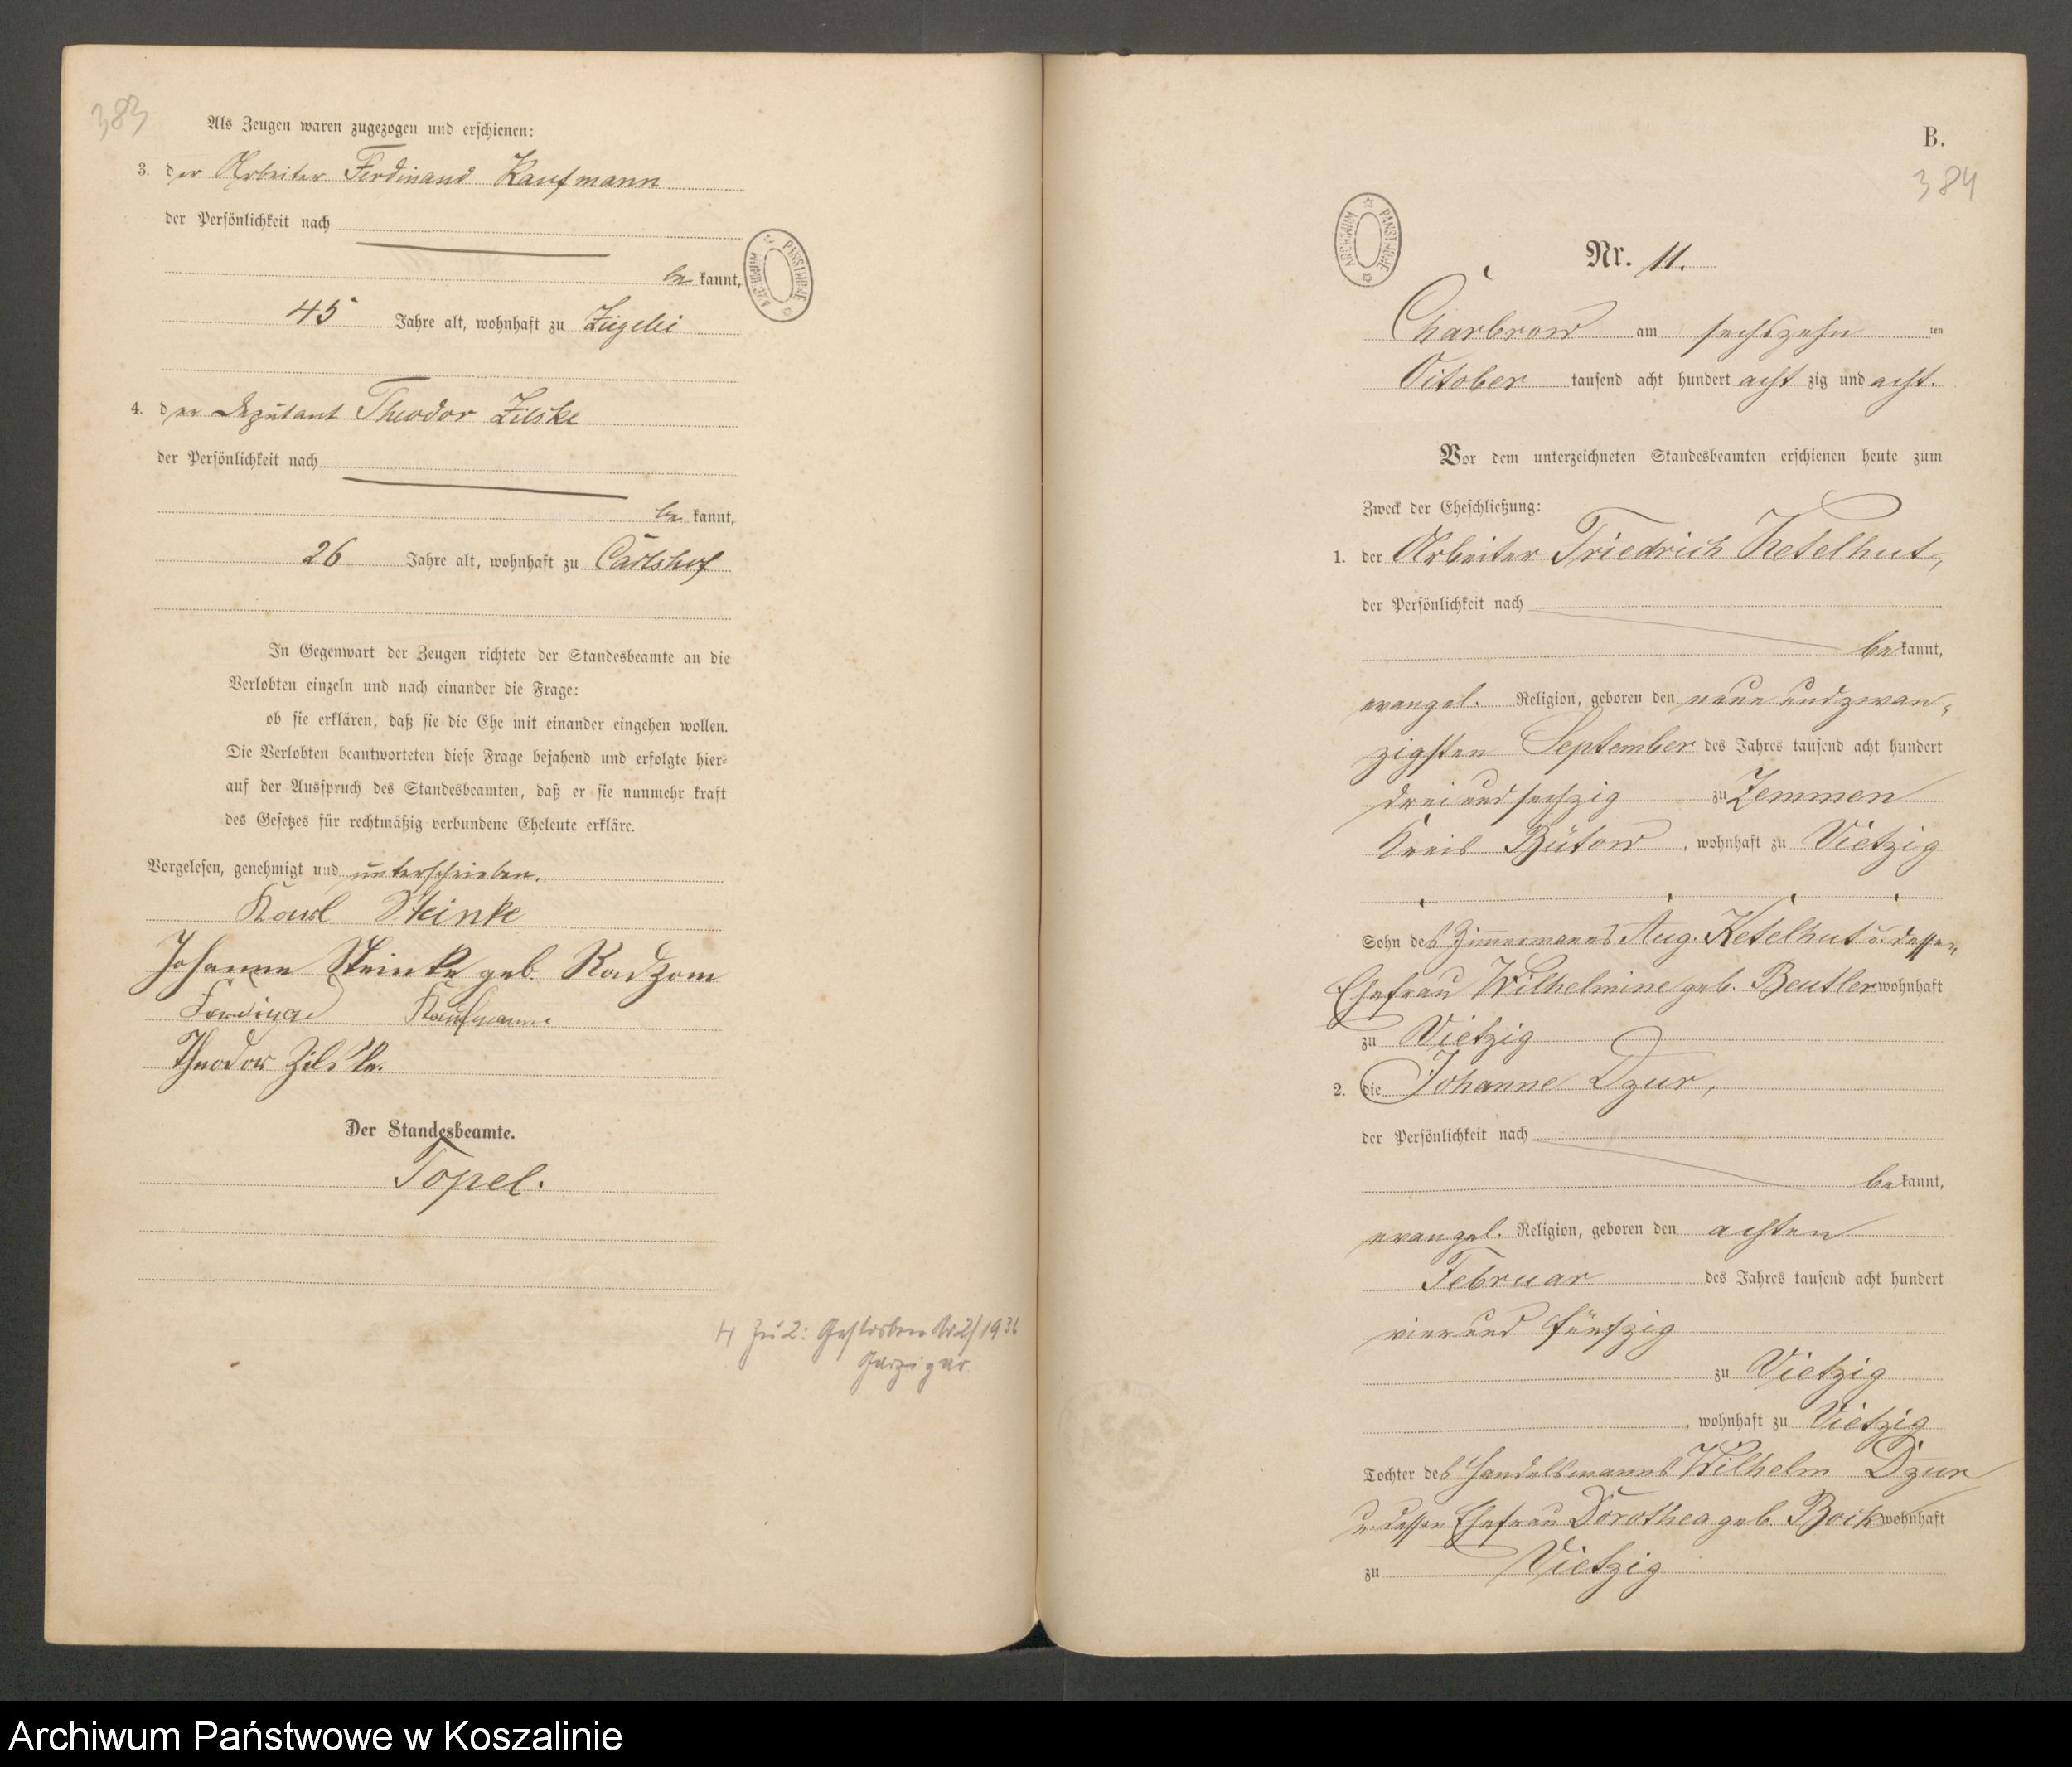 383
Als Zeugen waren zugezogen und erschienen:
3. der Arbeiter Ferdinand Kaufmann
der Persönlichkeit nach
be kannt,
45 Jahre alt, wohnhaft zu
4. der Deputant Theodor Zilske
der Persönlichkeit nach
be kannt,
26 Jahre alt, wohnhaft zu Carlshof
In Gegenwart der Zeugen richtete der Standesbeamte an die
Verlobten einzeln und nach einander die Frage:
ob sie erklären, daß sie die Ehe mit einander eingehen wollen.
Die Verlobten beantworteten diese Frage bejahend und erfolgte hier-
auf der Ausspruch des Standesbeamten, daß er sie nunmehr kraft
des Gesetzes für rechtmäßig verbundene Eheleute erkläre.
Vorgelesen, genehmigt und unterschrieben.
Karl Steinke
Johanne Steinke geb. Radzom
Kaufmann
Theodor Zilske.
Der Standesbeamte.
Topel.
H Zu 2: Gestorben Nr 2/1936
Garzigar.
B.
384
ARCHIWUM PAŃSTWOWE
Nr. 11.
Charbrow am sechszehn ten
October tausend acht hundert acht zig und acht.
Vor dem unterzeichneten Standesbeamten erschienen heute zum
Zweck der Eheschließung:
1. der Arbeiter Friedrich Ketelhut,
der Persönlichkeit nach
be kannt,
evangel. Religion, geboren den neunundzwan-
zigsten September des Jahres tausend acht hundert
dreiundsechzig zu Zemmen
Kreis Bütow, wohnhaft zu Vietzig
Sohn des Zimmermanns Aug. Ketelhut u. dessen
Ehefrau Wilhelmine geb. Beutler wohnhaft
zu Vietzig
2. die Johanne Dzur,
der Persönlichkeit nach
be kannt,
evangel. Religion, geboren den achten
Februar des Jahres tausend acht hundert
vierund fünfzig
zu Vietzig
, wohnhaft zu Vietzig
Tochter des Handelsmanns Wilhelm Dzur
u. dessen Ehefrau Dorothea geb. Bock wohnhaft
zu Vietzig
Archiwum Państwowe w Koszalinie